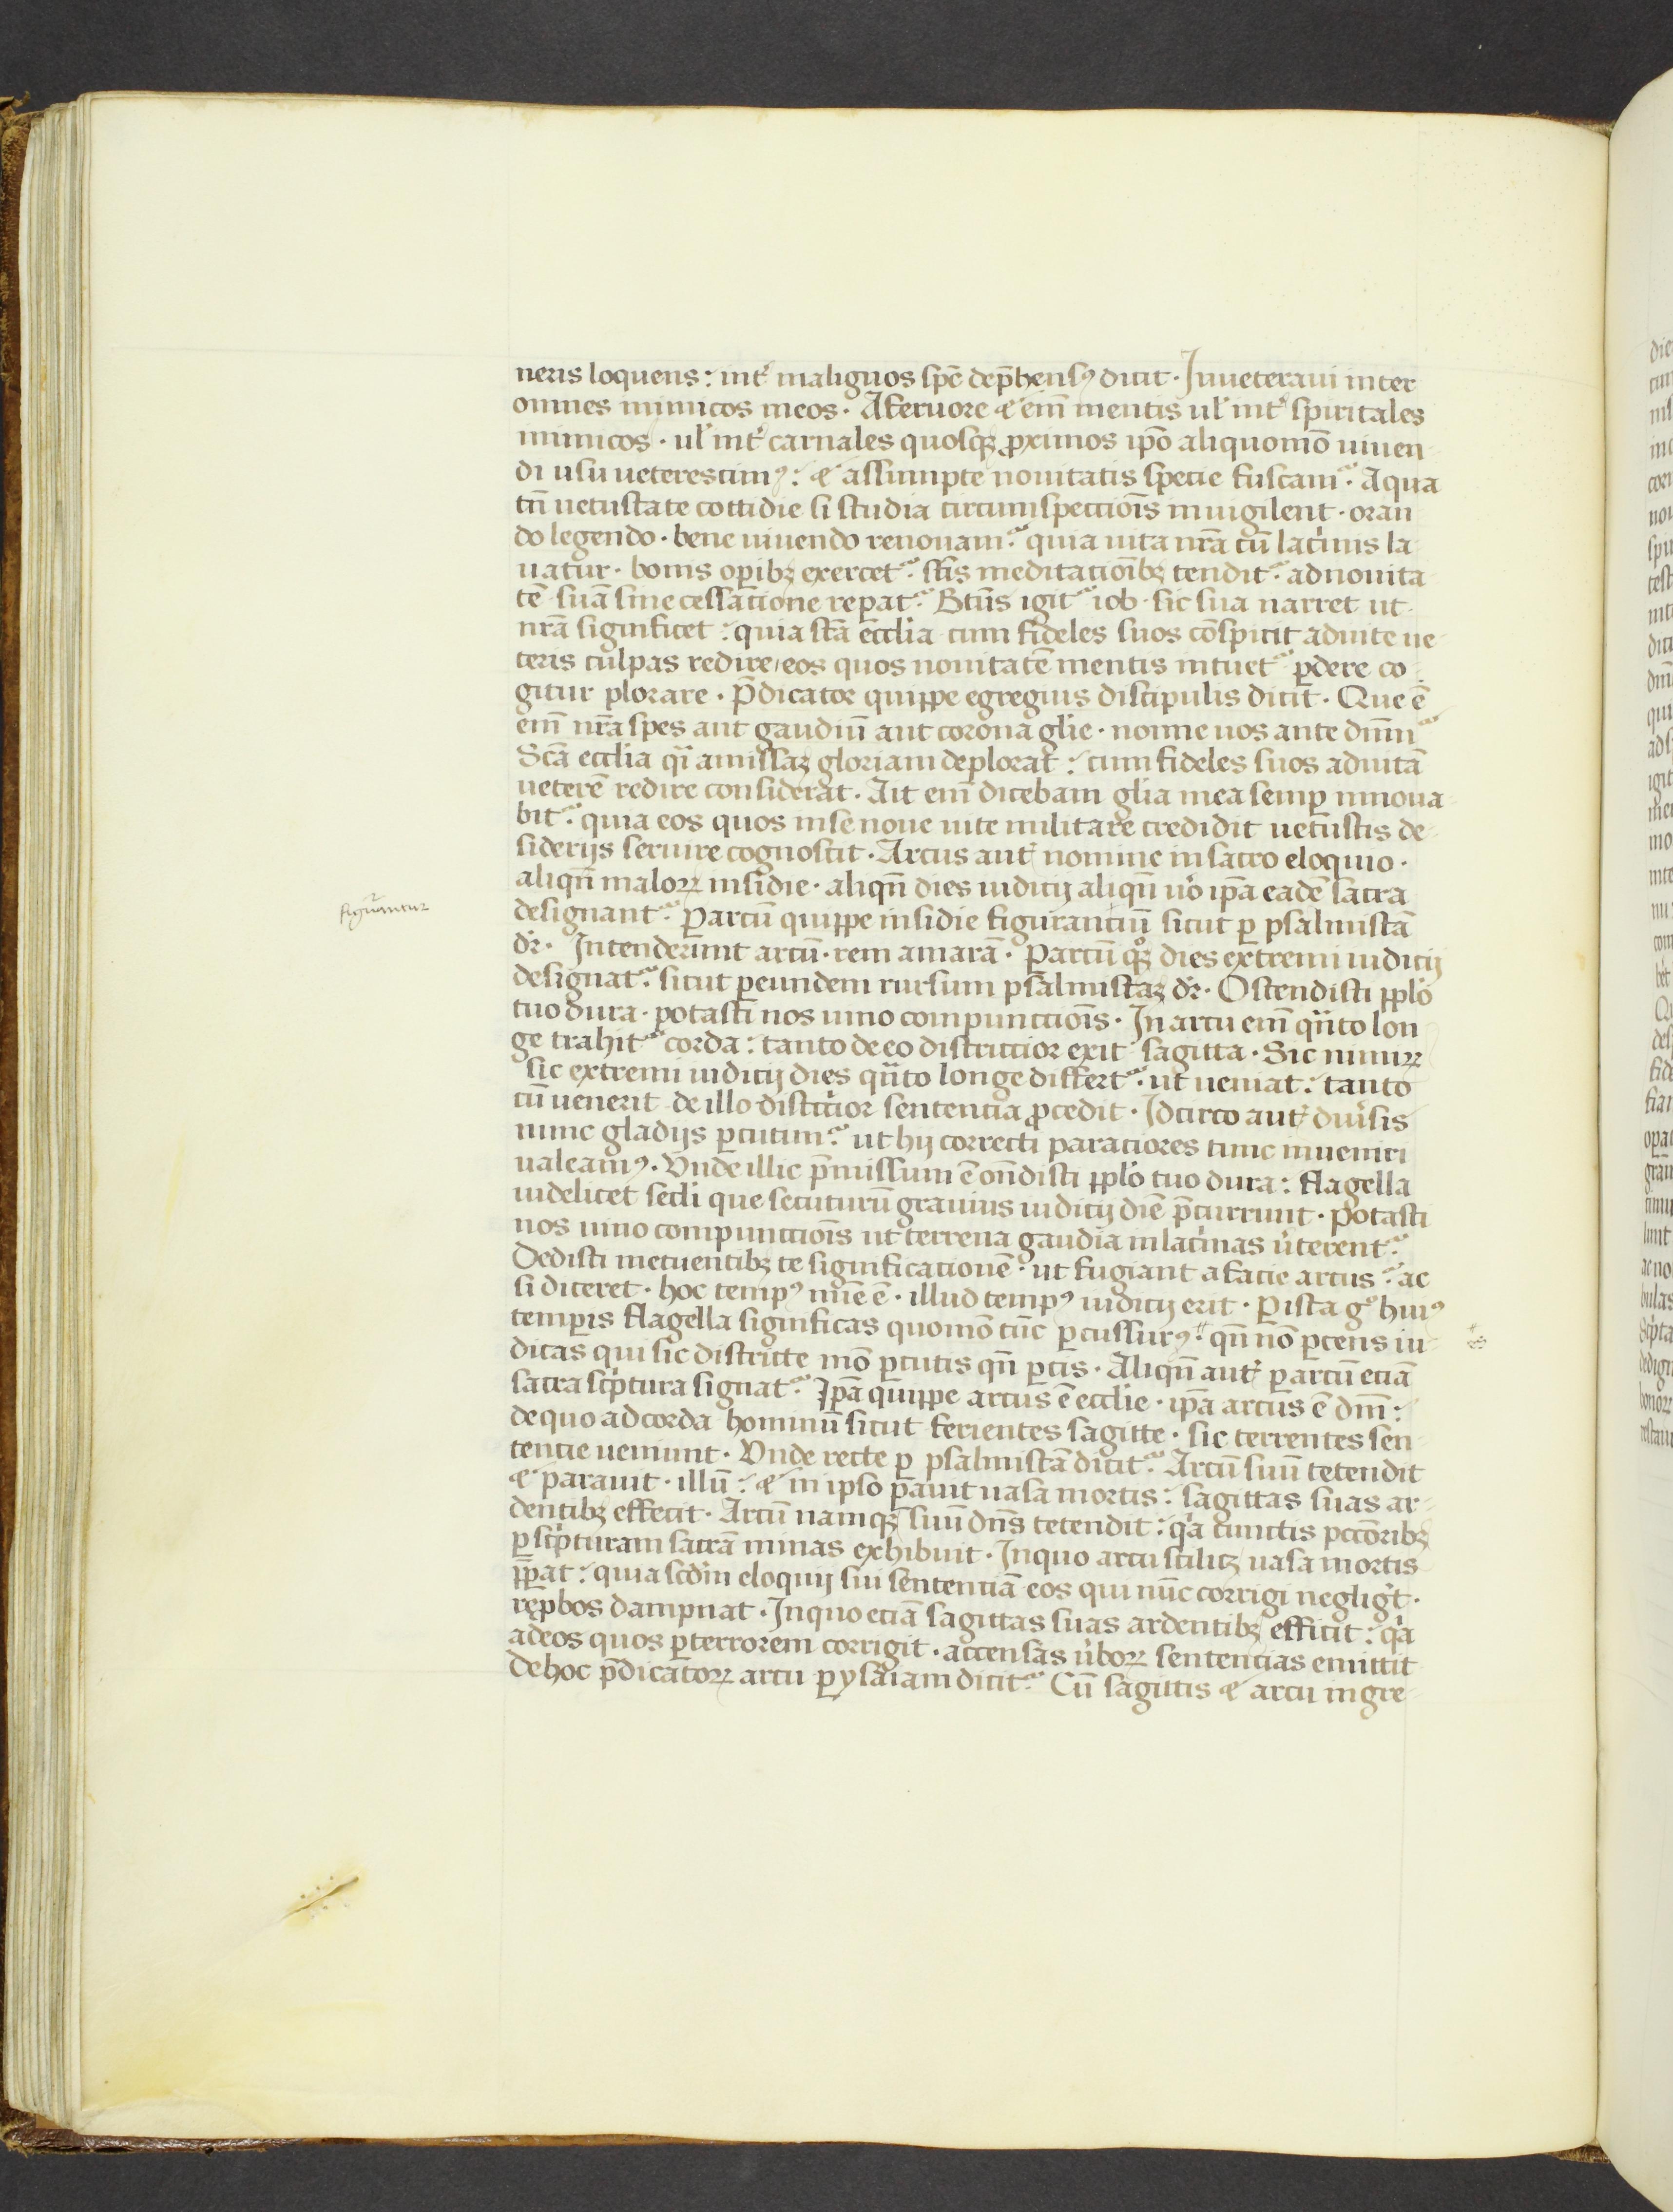 neris loquens : int᷑ malignos spē dep̄hensꝰ dicit · Inueteraui inter
omnes inimicos meos · A feruore & eni᷑ mentis ul᷑ int᷑ spiritales
inimicos · ul᷑ int᷑ carnales quosqꝫ ꝓximos ip̄o aliquomō uiuen
di usu ueterescimꝰ : & assumpte nouitatis specie fuscam᷑ · A qua
tn̄ uetustate cottidie si studia circumspectiōis inuigilent · oran
do legendo · bene uiuendo renouam᷑ · quia uita nr̄a cū lacrimis la
uatur · bonis oꝑibꝫ exercet᷑ · sc̄is meditatiōibꝫ tendit᷑ · ad nouita
tē suā sine cessatione reꝑat᷑ · Bt̄us igit᷑ iob sic sua narret ut
nr̄a significet : quia sc̄a ecclīa cum fideles suos cōspicit ad uite ue
teris culpas redire / eos quos nouitatē mentis intuet᷑ ꝑdere co
gitur plorare · P̄dicator quippe egregius discipulis dicit · Que ē
eni᷑ nr̄a spes aut gaudiū aut corona glīe · nonne uos ante dn̄m
Sc̄a ecclīa qͥ amissaꝫ gloriam deplorat : cum fideles suos ad uitā
ueterē redire considerat · Ait eni᷑ dicebam glīa mea semꝑ innoua
bit᷑ · quia eos quos in se noue uite militare credidit uetustis de
siderijs seruire cognoscit · Arcus aut᷑ nomine in sacro eloquio ·
aliqn̄ maloꝝ insidie · aliqn̄ dies iudicij aliqn̄ uͦ ip̄a eadē sacra
designant᷑ · P arcū quippe insidie figurantiū sicut ꝑ psalmistā
dr̄ · Intenderunt arcū · rem amarā · P arcū qͦꝫ dies extremi iudicij
designat᷑ · sicut ꝑ eundem rursum psalmistaꝫ dr̄ · Ostendisti pplō
tuo dura · potasti nos uino compunctiōis · In arcu eni᷑ qͣnto lon
ge trahit᷑ corda : tanto de eo districtior exit sagitta · Sic nimiꝝ
sic extremi iudicij dies qͣnto longe differt᷑ · ut ueniat : tanto
cū uenerit de illo distͥctior sentencia ꝓcedit · Idcirco aut᷑ diuͥsis
nunc gladijs ꝑcutim᷑ · ut hij correcti paratiores tunc inueniri
ualeamꝰ · Vnde illic p̄missum ē on̄disti pplō tuo dura : flagella
uidelicet sc̄li que secuturū grauius iudicij diē p̄currunt · Potasti
nos uino compunctiōis ut terrena gaudia in lacͥmas uͥterent᷑ ·
Dedisti metuentibꝫ te significationē · ut fugiant a facie arcus · ac
si diceret · hoc tempꝰ mīe ē · illud tempꝰ iudicij erit · P ista gͦ huiꝰ
temꝑis flagella significas quomō tūc ꝑcussurꝰ · qn̄ nō ꝑcens iu
dicas qui sic districte mō ꝑcutis qn̄ ꝑcis · Aliqn̄ aut᷑ ꝑ arcū eciā
sacra scͥptura signat᷑ · Ip̄a quippe arcus ē ecclīe · ip̄a arcus ē dn̄i :
de quo ad corda hominū sicut ferientes sagitte · sic terrentes sen
tencie ueniunt · Vnde recte ꝑ psalmistā dicit᷑ · Arcū suū tetendit
& parauit · illū : & in ipso ꝑauit uasa mortis : sagittas suas ar
dentibꝫ effecit · Arcū namqꝫ suū dn̄s tetendit : qͥa cunctis pccōribꝫ
ꝑ scͥpturam sacrā minas exhibuit · In quo arcu scilicꝫ uasa mortis
p̄ꝑat : quia scdm̄ eloquij sui sentenciā eos qui nūc corrigi negligt᷑ ·
reꝓbos dampnat · In quo eciā sagittas suas ardentibꝫ efficit : qͥa
ad eos quos ꝑ terrorem corrigit · accensas uͥboꝝ sentencias emittit
De hoc p̄dicatoꝝ arcu ꝑ ysaiam dicit᷑ · Cū sagittis & arcu ingre
figurantur
es